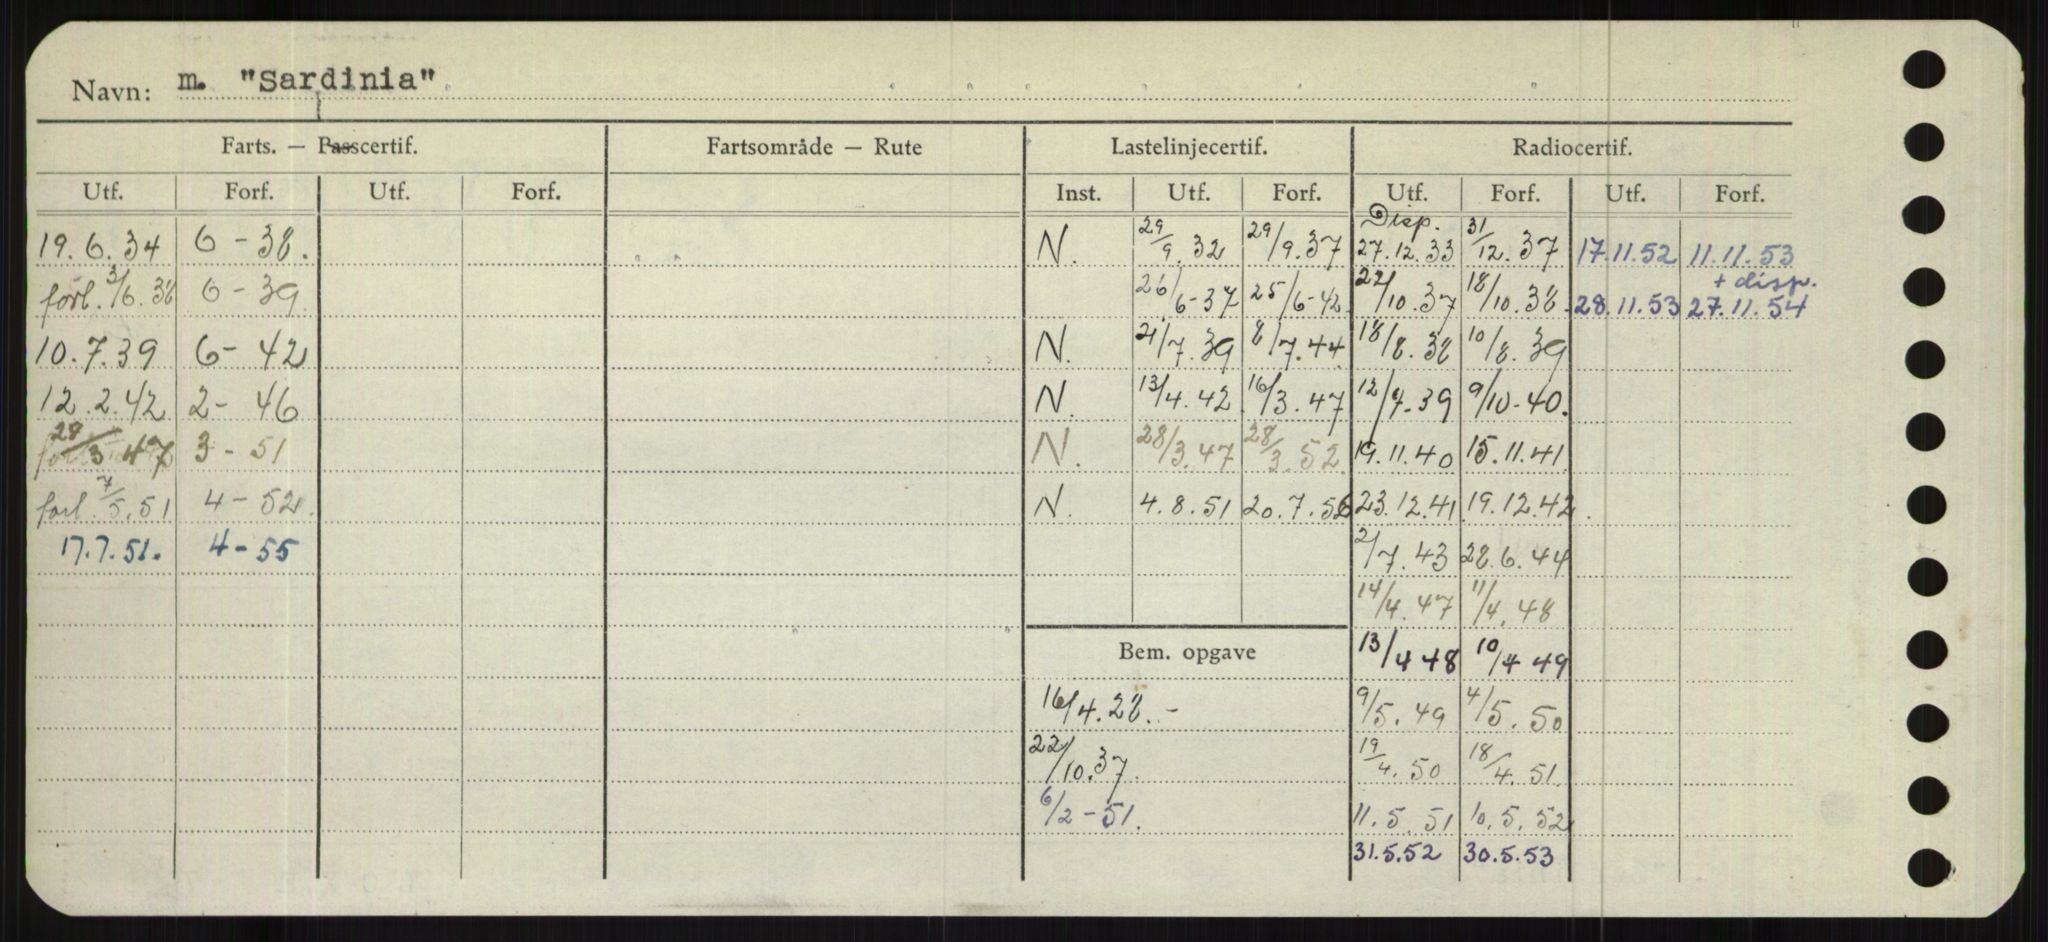 Navn: m. "Sardinia"
Farts. — Passcertif. Fartsområde — Rute Lastelinjecertif. Radiocertif.
Utf. Forf. Utf. Forf. Inst. Utf. Forf. Utf. Forf. Utf. Forf.
19.6.34 6-38. N. 29/9.32 29/9.37 Disp. 27.12.33 31/12.37 17.11.52 11.11.53
forl. 3/6.38 6-39 26/6-37 25/6-42 22/10.37 18/10.38 28.11.53 + disp. 27.11.54
10.7.39 6-42 N. 21/7.39 8/7.44 18/8.38 10/8.39
12.2.42 2-46 N. 13/4.42 16/3.47 12/7.39 9/10-40.
28/3 47 3-51 N. 28/3.47 28/3.52 19.11.40 15.11.41
forl. 7/5.51 4-52 N. 4.8.51 20.7.56 23.12.41 19.12.42.
17.7.51. 4-55 2/7.43 28.6.44
14/4.47 11/4.48
Bem. opgave 13/4 48 10/4 49
16/4.28.- 9/5.49 4/5.50
22/10.37. 19/4.50 18/4.51.
6/2-51. 11.5.51 10.5.52
31.5.52 30.5.53